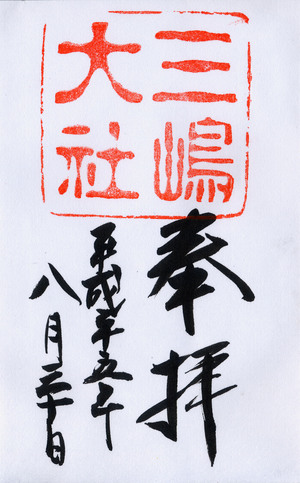 三嶋
大社
奉拝
平成二十五年
八月二十日